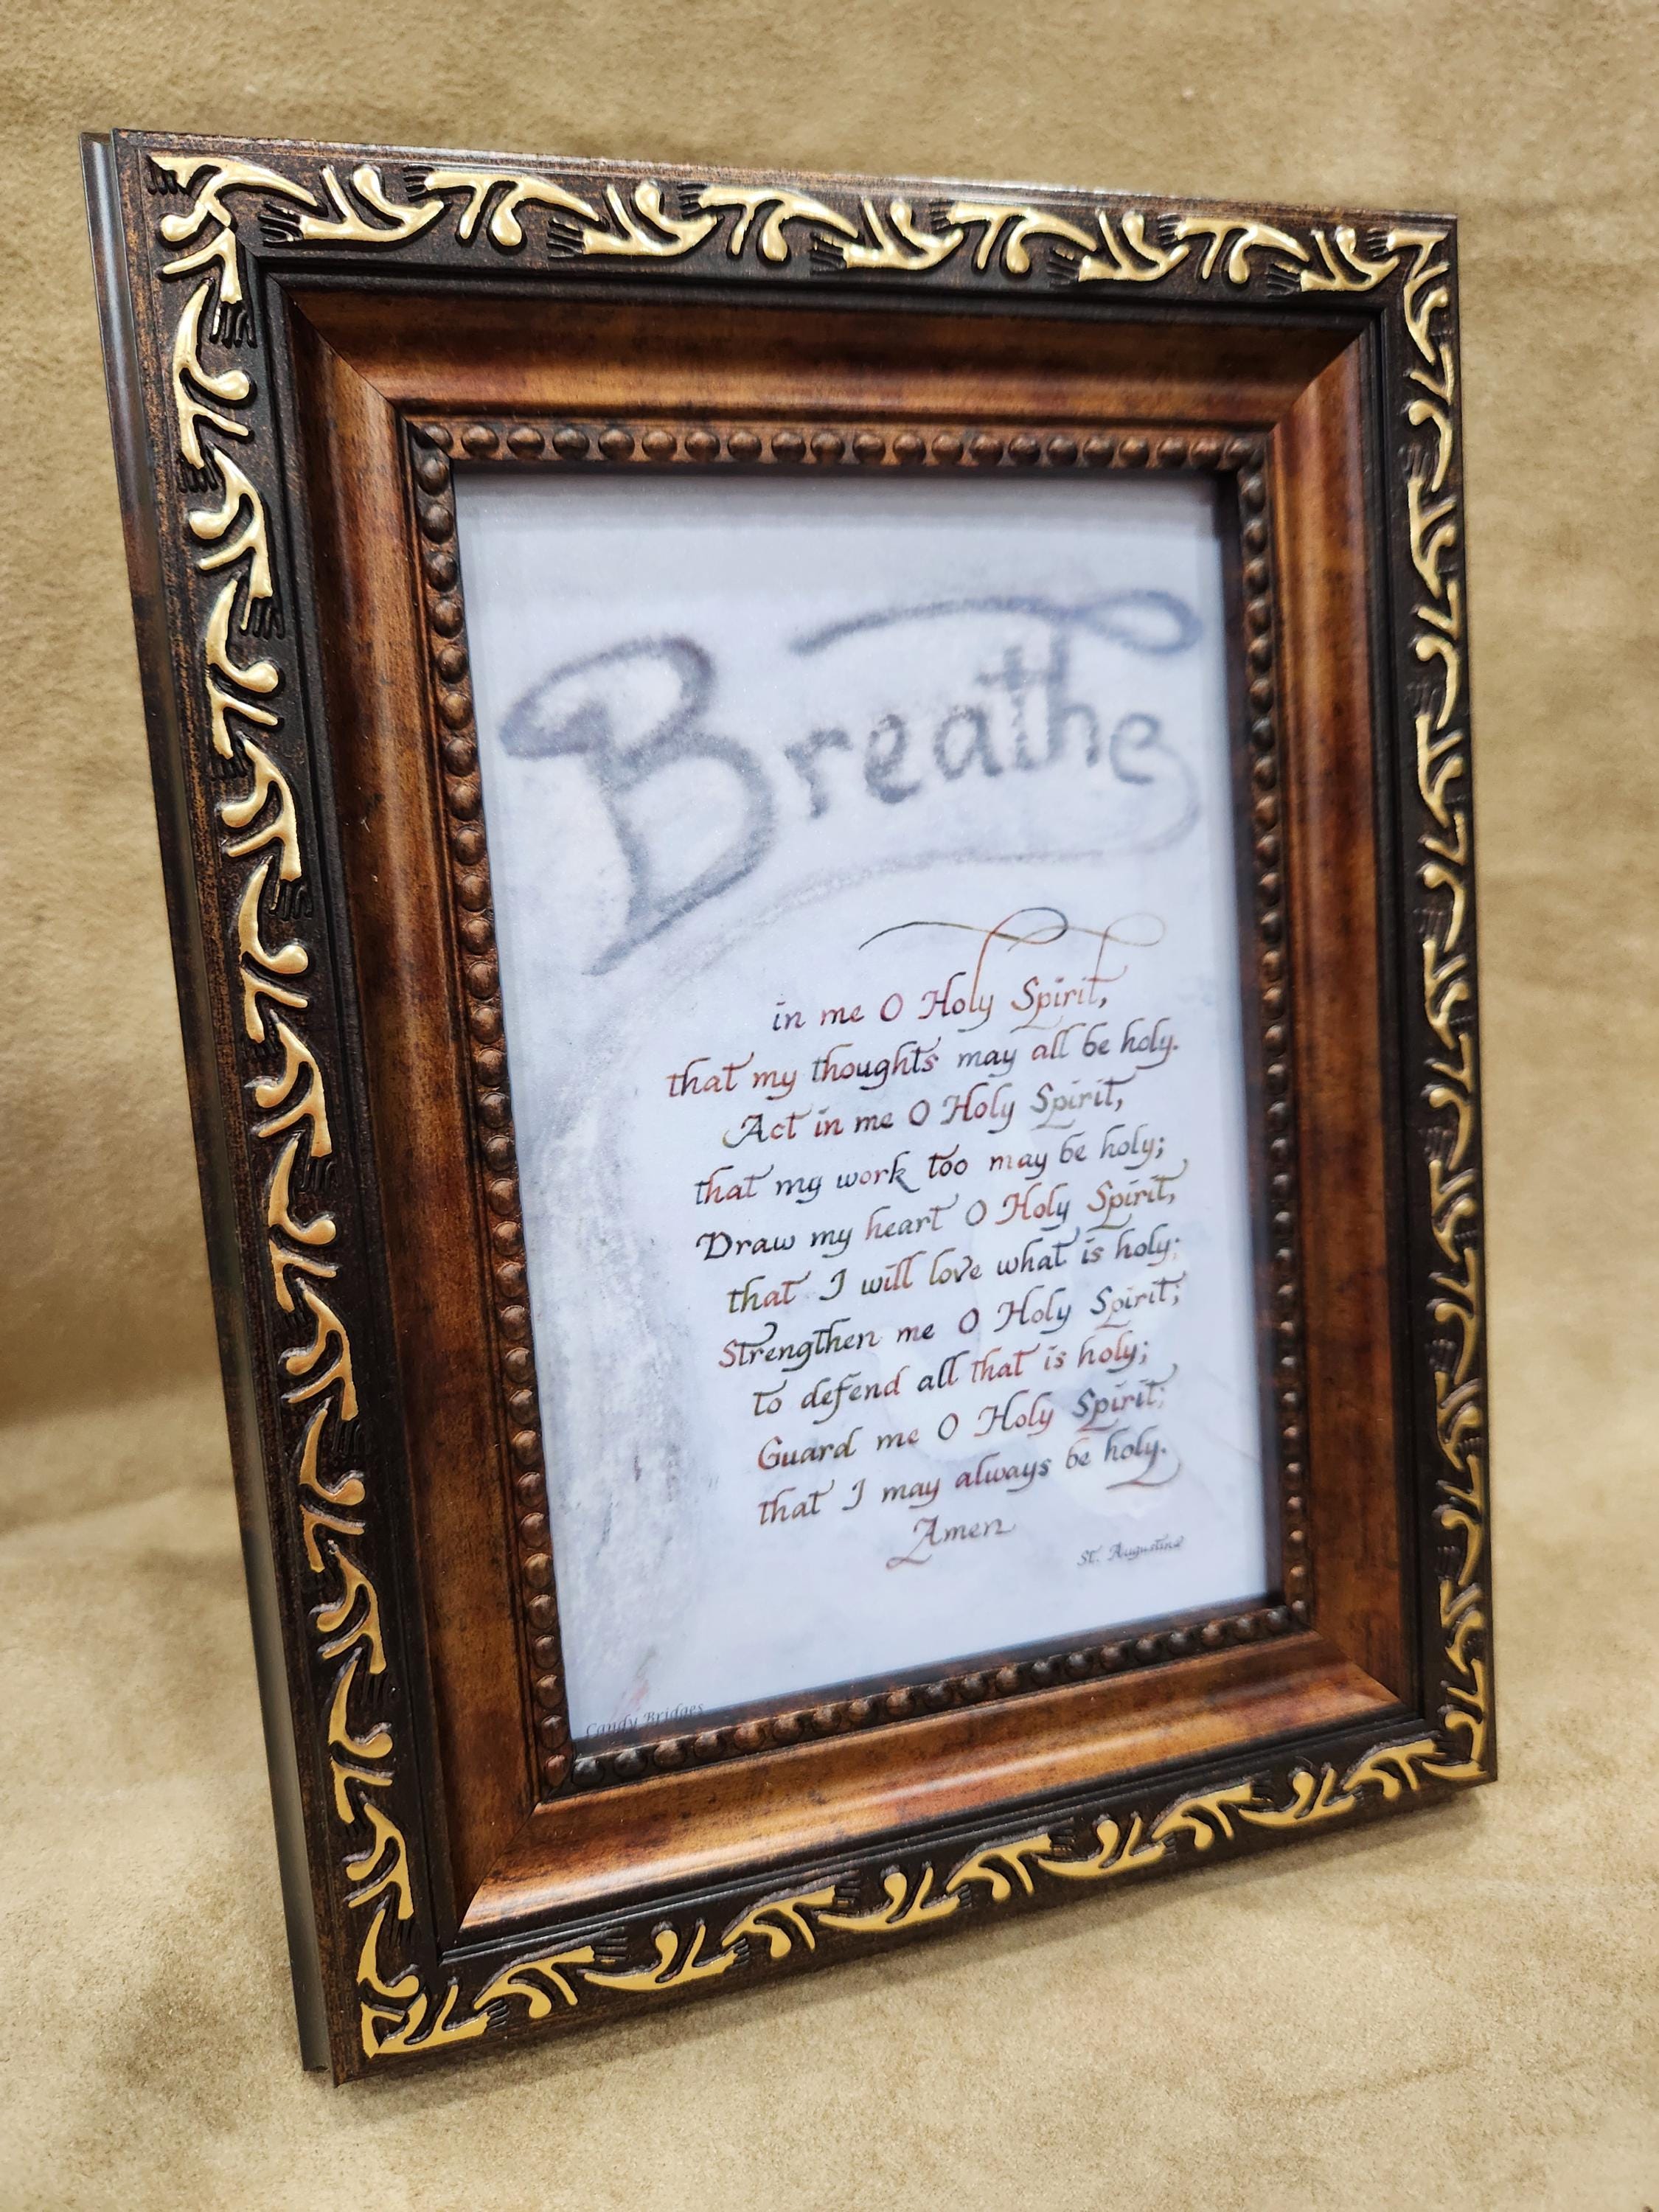 Breathe
in me O Holy Spirit,
that my thoughts may all be holy.
Act in me O Holy Spirit,
that my work too may be holy;
Draw my heart O Holy Spirit,
that I will love what is holy;
Strengthen me O Holy Spirit;
to defend all that is holy;
Guard me O Holy Spirit;
that I may always be holy.
Amen
St. Augustine
Candy Bridges